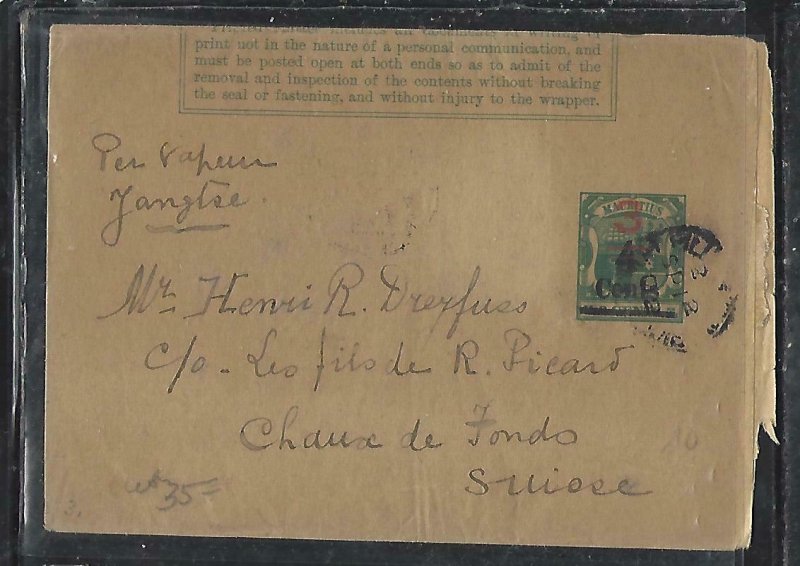 print not in the nature of a personal communication, and
must be posted open at both ends so as to admit of the
removal and inspection of the contents without breaking
the seal or fastening, and without injury to the wrapper.
Per Vapeur
Yangtse.
MAURITIUS
3
4
Cen
Mr. Henri R. Dreyfuss
c/o - Les fils de R. Picard
Chaux de Fonds
Suisse
10
35=
3.